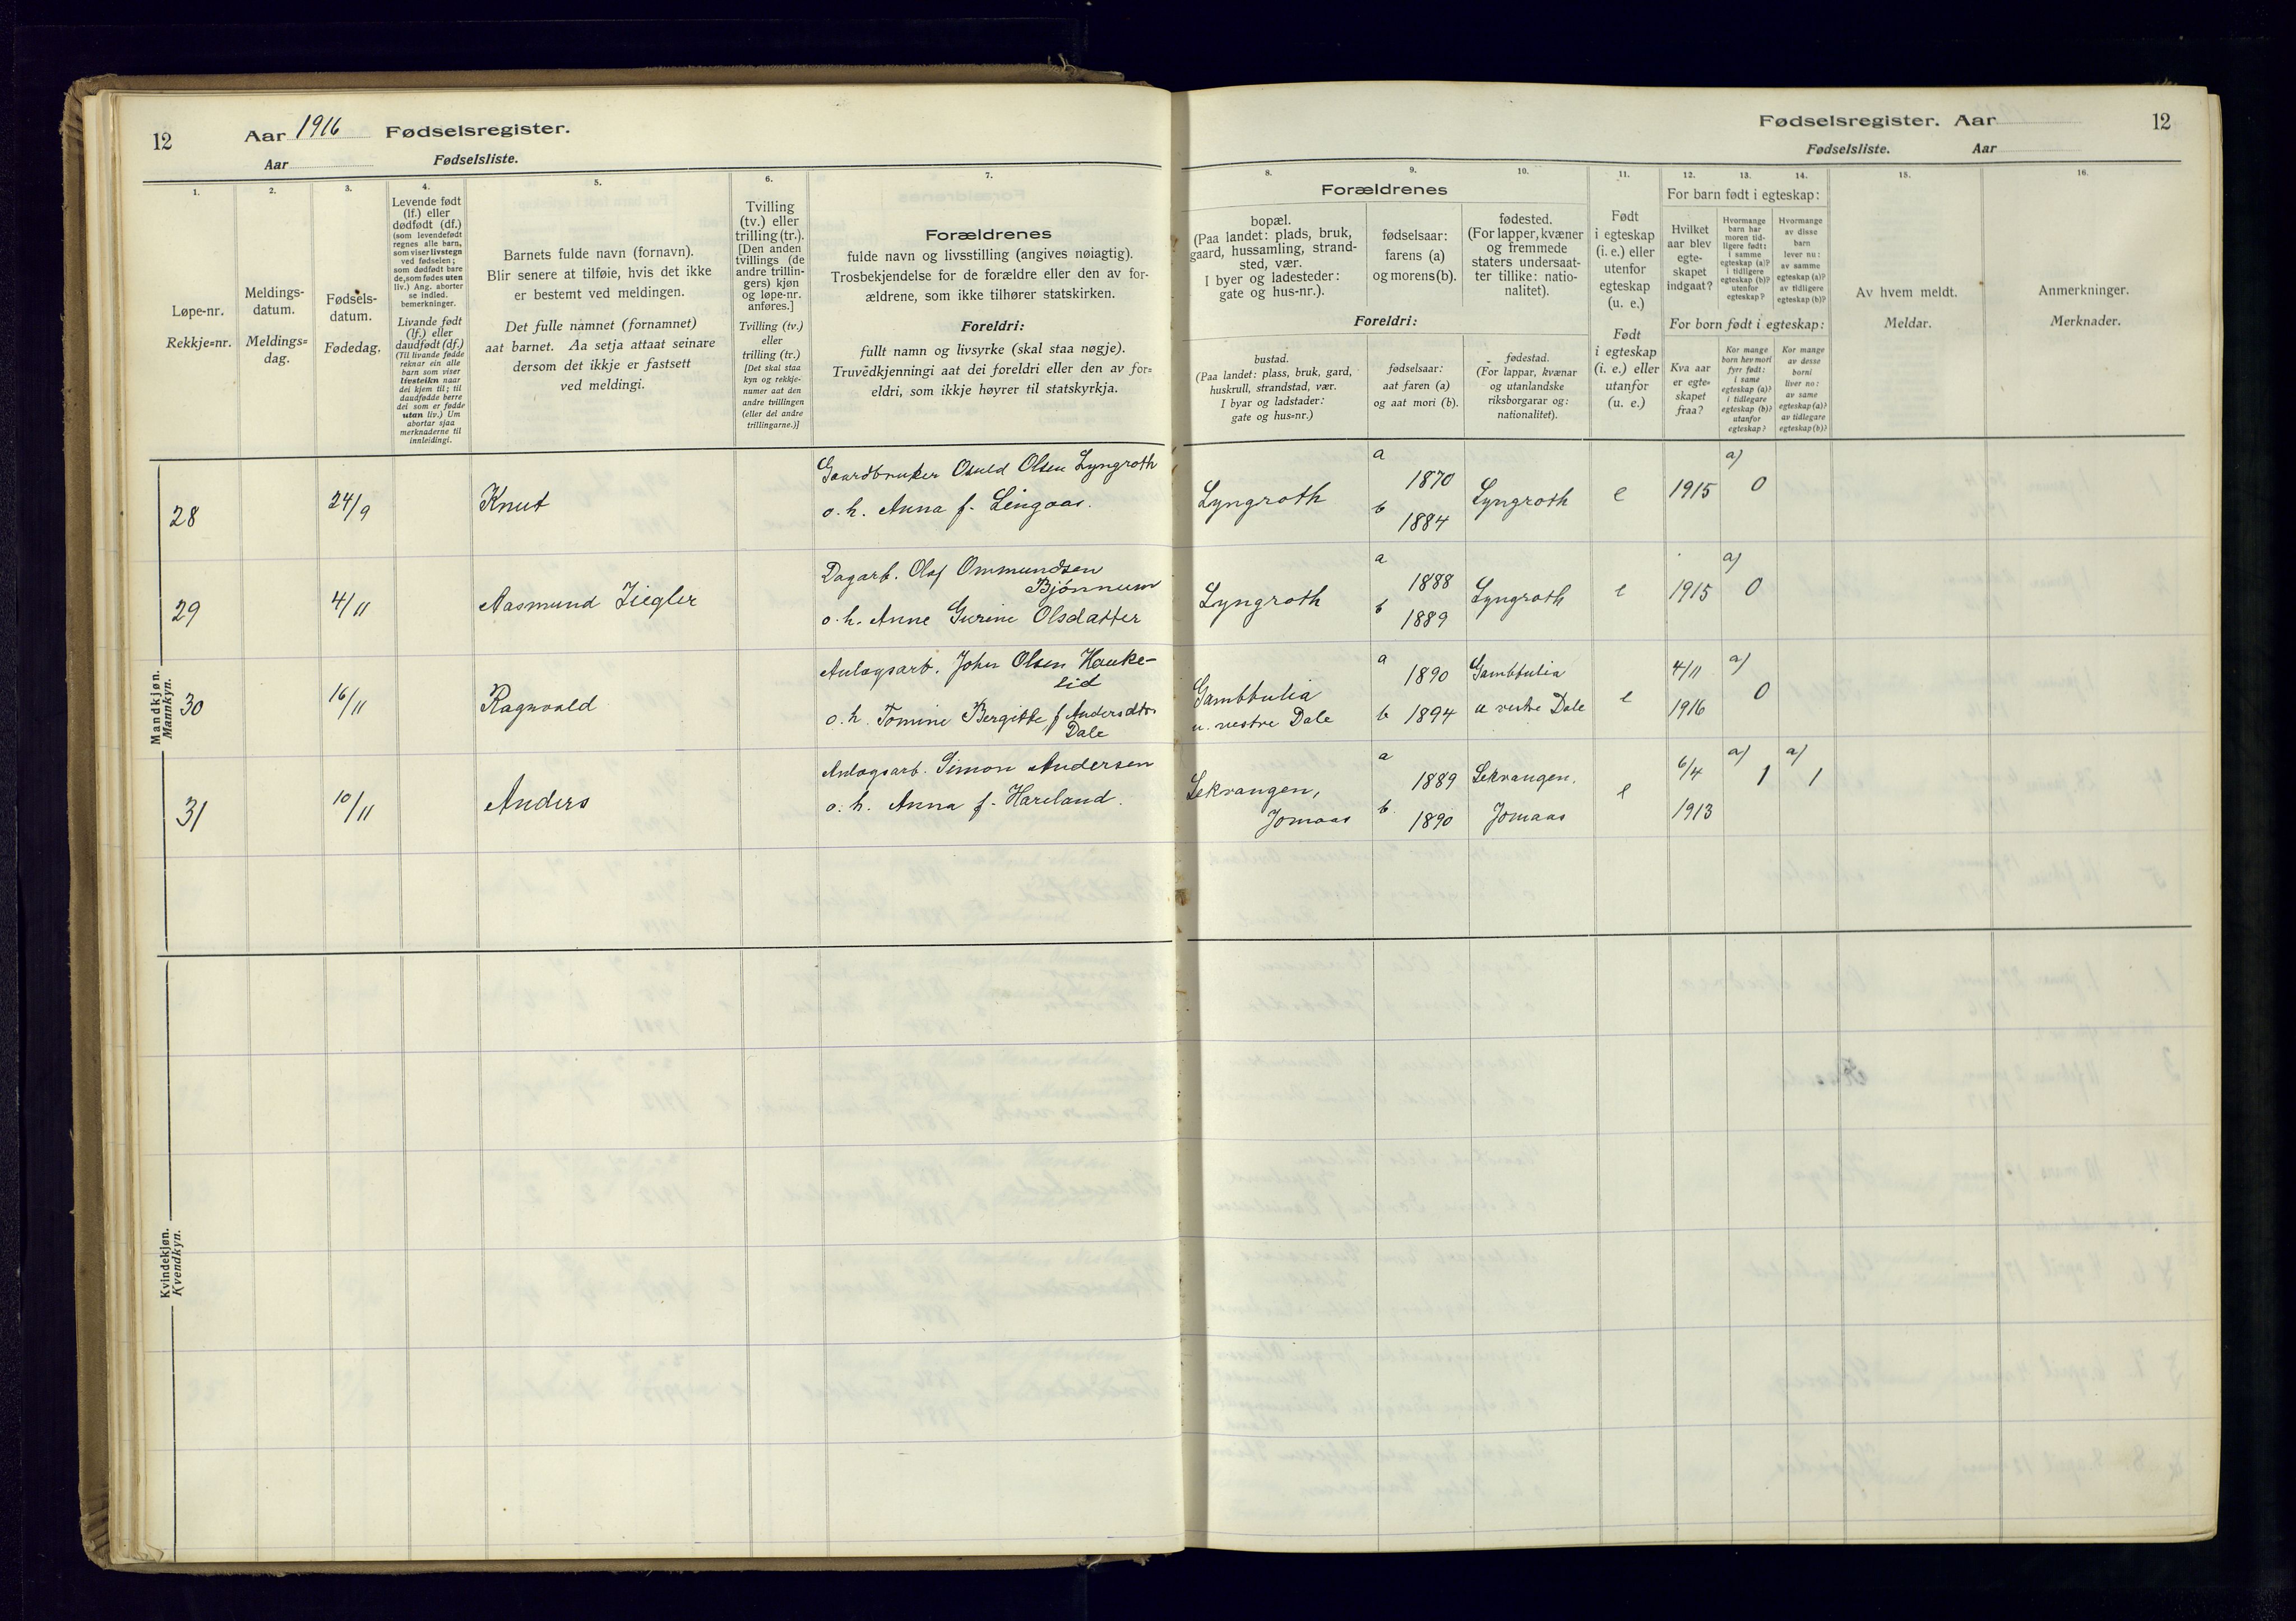 12
Aar 1916 Fødselsregister.
Aar Fødselsliste.
1.
2.
3.
4.
5.
6.
7.
Løpe-nr.
Rekkje=nr.
Meldings-
datum.
Meldings=
dag.
Fødsels-
datum.
Fødedag.
Levende født
(lf.) eller
dødfødt (df.)
(som levendefødt
regnes alle barn,
som viser livstegn
ved fødselen;
som dødfødt bare
de, som fødes uten
liv.) Ang. aborter
se indled.
bemerkninger.
Livande født
(lf.) eller
daudfødt (df.)
(Til livande fødde
reknar ein alle
barn som viser
livsteikn naar
dei kjem til; til
daudfødde berre
dei som er fødde
utan liv.) Um
abortar sjaa
merknaderne til
innleidingi.
Barnets fulde navn (fornavn).
Blir senere at tilføie, hvis det ikke
er bestemt ved meldingen.
Det fulle namnet (fornamnet)
aat barnet. Aa setja attaat seinare
dersom det ikkje er fastsett
ved meldingi.
Tvilling
(tv.) eller
trilling (tr.).
[Den anden
tvillings (de
andre trillin-
gers) kjøn
og løpe-nr.
anføres.]
Tvilling (tv.)
eller
trilling (tr.)
[Det skal staa
kyn og rekkje-
numer aat den
andre tvillingen
(eller dei andre
trillingarne.)]
Forældrenes
fulde navn og livsstilling (angives nøiagtig).
Trosbekjendelse for de forældre eller den av for-
ældrene, som ikke tilhører statskirken.
Foreldri:
fullt namn og livsyrke (skal staa nøgje).
Truvedkjenningi aat dei foreldri eller den av for=
eldri, som ikkje høyrer til statskyrkja.
Mandkjøn.
Mannkyn.
28
24/9
Knut
Gaardbruker Osuld Olsen Lyngroth
o. h. Anna f. Lingaas.
29
4/11
Aasmund Ziegler
Dagarb. Olaf Ommundsen
Bjönnum
o. h. Anne Gurine Olsdatter
30
16/11
Ragnvald
Anlægsarb. John Olsen Hauke-
lid
o. h. Tomine Bergitte f. Andersdtr.
Dale
31
10/11
Anders
Anlægsarb. Simon Andersen
o. h. Anna f. Hareland.
Kvindekjøn.
Kvendkyn.
Fødselsregister. Aar
12
Fødselsliste. Aar
8.
9.
10.
11.
12.
13.
14.
15.
16.
Forældrenes
bopæl.
(Paa landet: plads, bruk,
gaard, hussamling, strand-
sted, vær.
I byer og ladesteder:
gate og hus-nr.).
fødselsaar:
farens (a)
og morens (b).
fødested.
(For lapper, kvæner
og fremmede
staters undersaat-
ter tillike: natio-
nalitet).
Foreldri:
bustad.
(Paa landet: plass, bruk, gard,
huskrull, strandstad, vær.
I byar og ladstader:
gate og hus=nr.)
fødselsaar:
aat faren (a)
og aat mori (b).
fødestad.
(For lappar, kvænar
og utanlandske
riksborgarar og:
nationalitet).
Født
i egteskap
(i. e.) eller
utenfor
egteskap
(u. e.)
Født
i egteskap
(i. e.) eller
utanfor
(u. e.)
For barn født i egteskap:
Hvilket
aar blev
egte-
skapet
indgaat?
Hvormange
barn har
moren tid-
ligere født:
i samme
egteskap (a)?
i tidligere
egteskap (b)?
utenfor
egteskap?
Hvormange
av disse
barn
lever nu:
av samme
egteskap (a)?
av tidligere
egteskap (b)?
For born født i egteskap:
Kva aar
er egte=
skapet
fraa?
Kor mange
barn hev mori
fyrr født:
i same
egteskap (a)?
i tidlegare
egteskap (b)?
utanfor
egteskap?
Kor mange
av desse
borni
liver no:
av same
egteskap (a)?
av tidlegare
egteskap (b)?
Av hvem meldt.
Meldar.
Anmerkninger.
Merknader.
Lyngroth
a 1870
b 1884
Lyngroth
e
1915
a) 0
Lyngroth
a 1888
b 1889
Lyngroth
e
1915
a) 0
u. vestre Dale
a 1890
b 1894
u vestre Dale
e
4/11
1916
a) 0
Lekvangen,
Jomaas
a 1889
b. 1890
Lekvangen.
Jomaas
e
6/4
1913
a) 1
a) 1